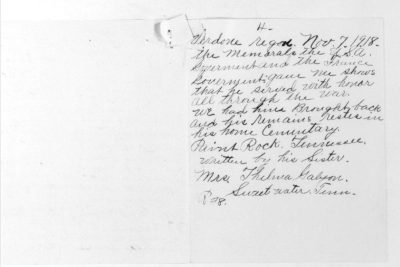 4
Verdone Regon. Nov. 7. 1918.
the Memorals the U.S.A.
Goverment and the France
Goverment gave me shows
that he served with honor
all through the war.
we had him brought back
and his remains restes in
his home Cementary.
Paint Rock, Tennessee.
written by his Sister.
Mrs Thelma
Sweetwater, Tenn.